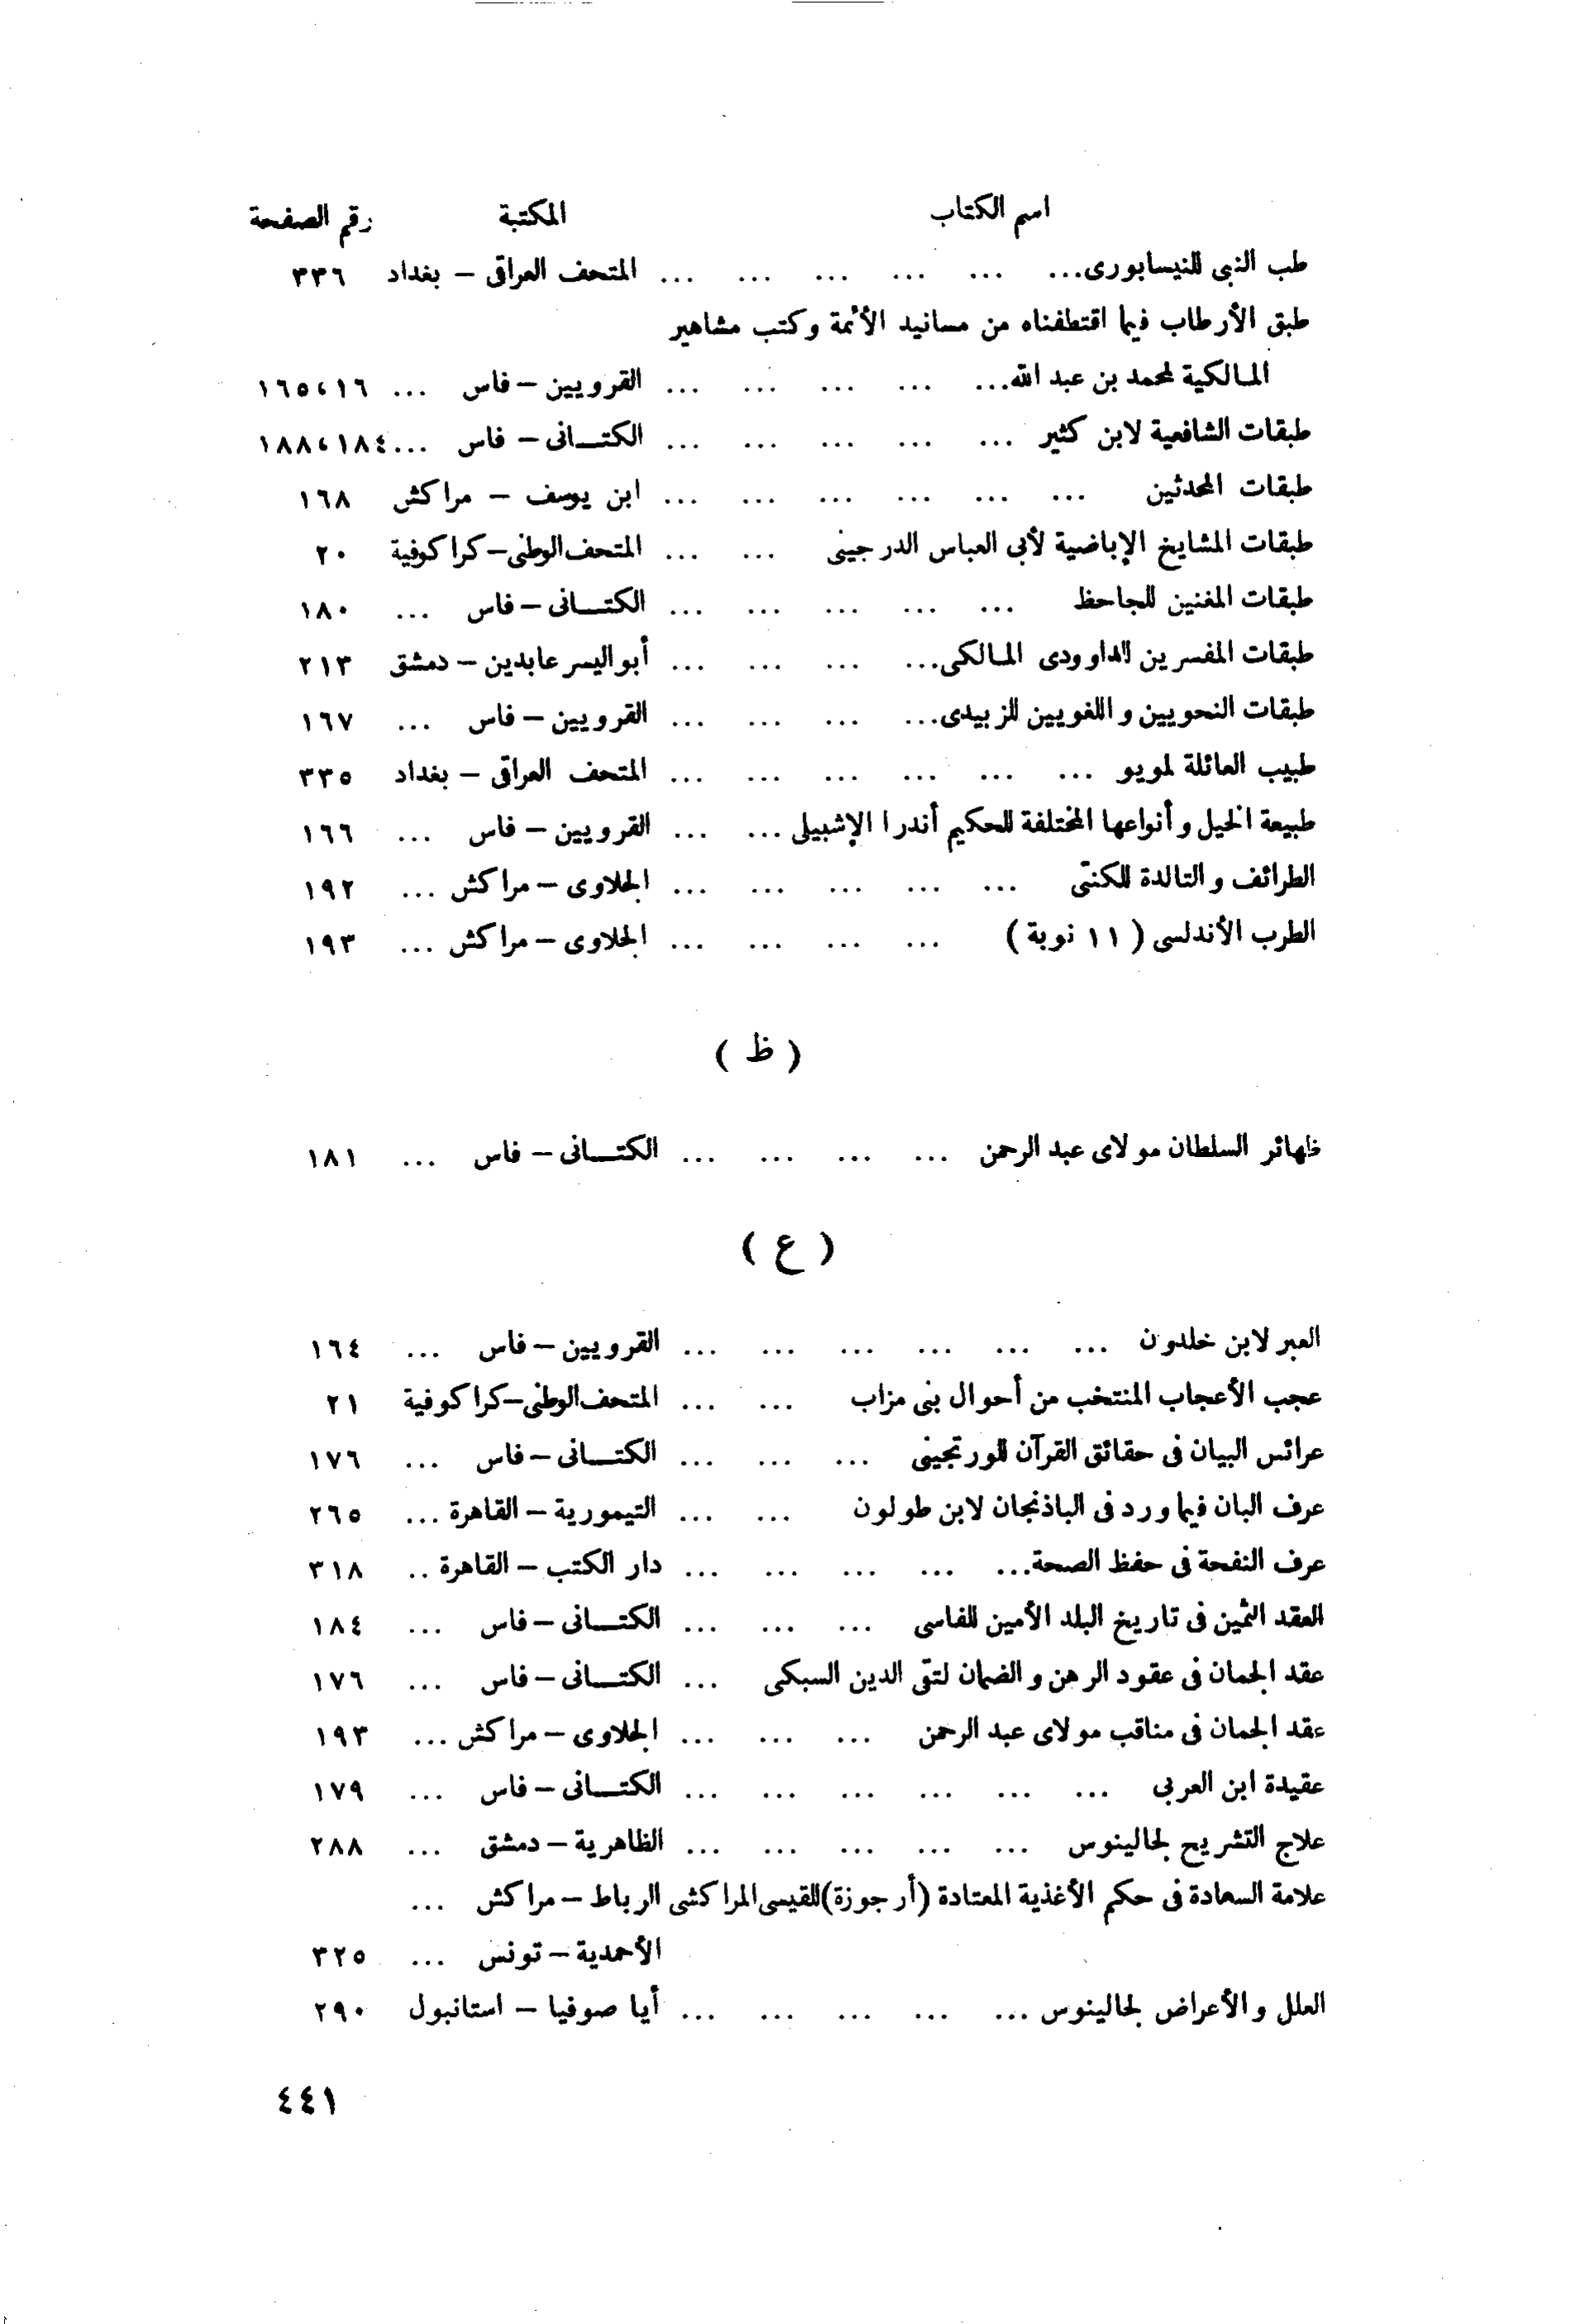 اسم الكتاب المكتبة رقم الصفحة
طب النبى للنيسابورى... ... ... ... ... ... المتحف العراقى – بغداد ٣٣٦
طبق الأرطاب فيما اقتطفناه من مسانيد الأئمة وكتب مشاهير
المالكية لمحمد بن عبد الله... ... ... ... ... القرويين – فاس ... ١٦٥،١٦
طبقات الشافعية لابن كثير ... ... ... ... ... الكتانى – فاس ...١٨٨،١٨٤
طبقات المحدثين ... ... ... ... ... ... ابن يوسف – مراكش ١٦٨
طبقات المشايخ الإباضية لأبى العباس الدرجينى ... ... المتحف الوطنى – كراكوفية ٢٠
طبقات المغنين للجاحظ ... ... ... ... ... الكتانى – فاس ... ١٨٠
طبقات المفسرين للداوودى المالكى... ... ... ... أبو اليسر عابدين – دمشق ٢١٣
طبقات النحويين واللغويين للزبيدى... ... ... ... القرويين – فاس ... ١٦٧
طبيب العائلة لمويو ... ... ... ... ... ... المتحف العراقى – بغداد ٣٣٥
طبيعة الخيل وأنواعها المختلفة للحكيم أندرا الإشبيلى ... ... القرويين – فاس ... ١٦٦
الطرائف والتالدة للكنتى ... ... ... ... ... الجلاوى – مراكش ... ١٩٢
الطرب الأندلسى ( ١١ نوبة ) ... ... ... ... الجلاوى – مراكش ... ١٩٣
( ظ )
ظهائر السلطان مولاى عبد الرحمن ... ... ... ... الكتانى – فاس ... ١٨١
( ع )
العبر لابن خلدون ... ... ... ... ... ... القرويين – فاس ... ١٦٤
عجب الأعجاب المنتخب من أحوال بنى مزاب ... ... المتحف الوطنى – كراكوفية ٢١
عرائس البيان فى حقائق القرآن للورتجينى ... ... ... الكتانى – فاس ... ١٧٦
عرف البان فيما ورد فى الباذنجان لابن طولون ... ... التيمورية – القاهرة ... ٢٦٥
عرف النفحة فى حفظ الصحة... ... ... ... ... دار الكتب – القاهرة .. ٣١٨
العقد الثمين فى تاريخ البلد الأمين للفاسى ... ... ... الكتانى – فاس ... ١٨٤
عقد الجمان فى عقود الرهن والضمان لتقى الدين السبكى ... الكتانى – فاس ... ١٧٦
عقد الجمان فى مناقب مولاى عبد الرحمن ... ... ... الجلاوى – مراكش ... ١٩٣
عقيدة ابن العربى ... ... ... ... ... ... الكتانى – فاس ... ١٧٩
علاج التشريح لجالينوس ... ... ... ... ... الظاهرية – دمشق ... ٢٨٨
علامة السعادة فى حكم الأغذية المعتادة (أرجوزة) للقيسى المراكشى الرباط – مراكش ...
الأحمدية – تونس ... ٣٢٥
العلل والأعراض لجالينوس ... ... ... ... ... أيا صوفيا – استانبول ٢٩٠
٤٤١